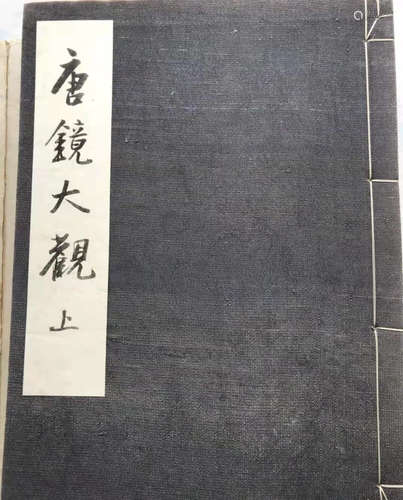 唐鏡大觀上